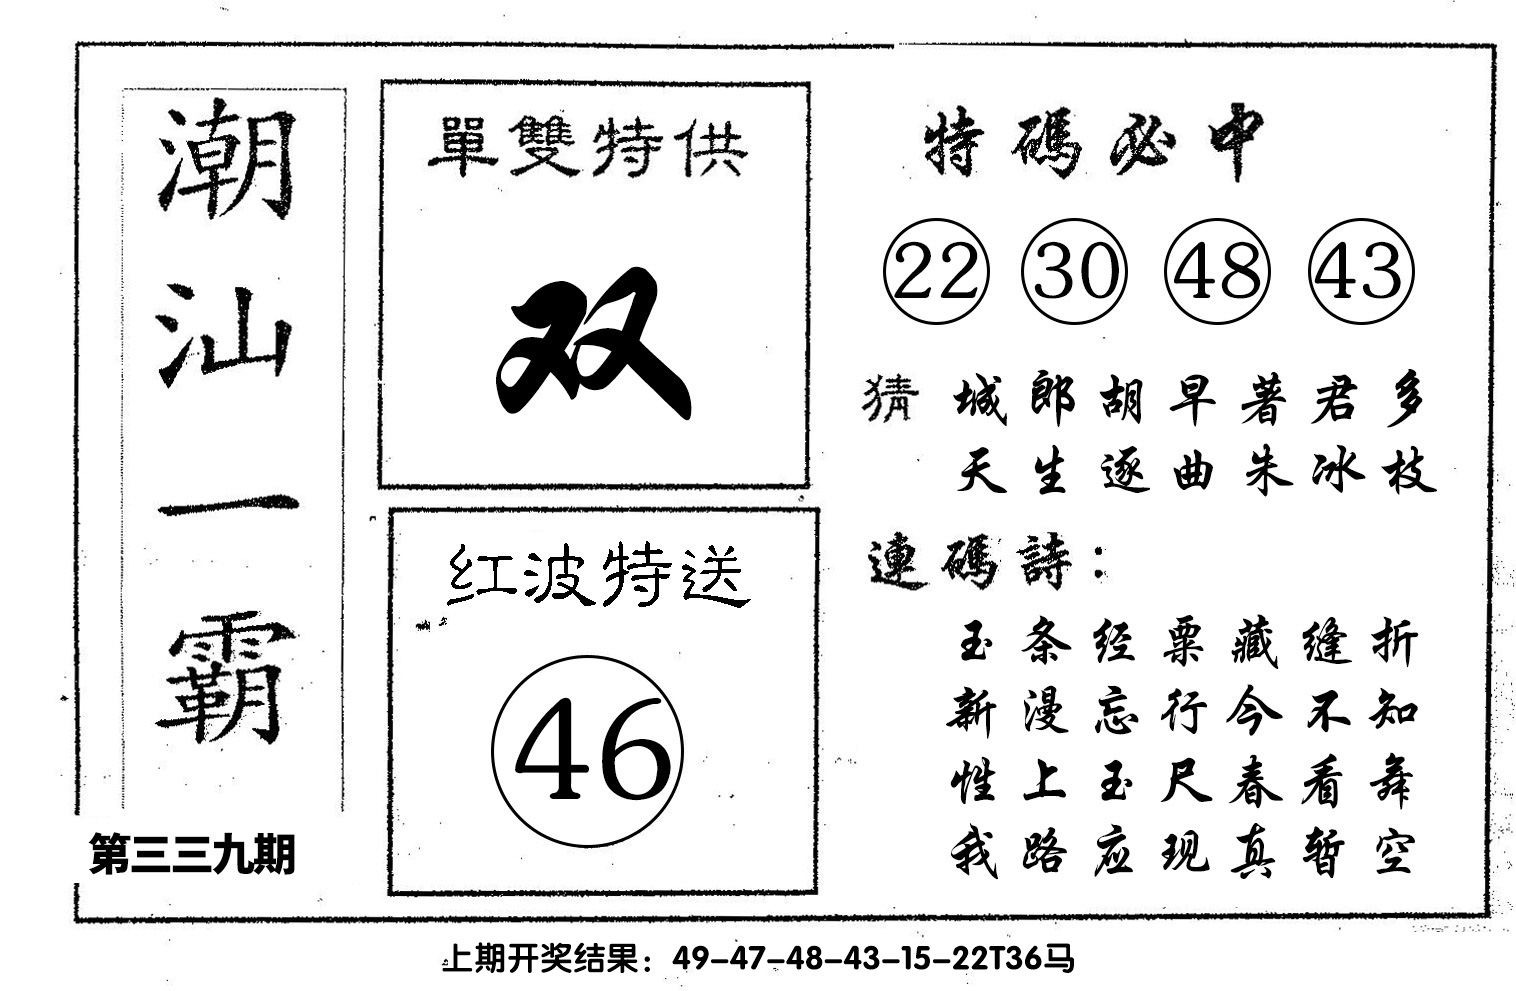 潮汕一霸
第三三九期
單雙特供
双
红波特送
46
特碼必中
22 30 48 43
猜 城郎胡早著君多
天生逐曲朱冰枝
連碼詩：
玉条经粟藏缝折
新漫忘行今不知
性上玉尺春看舞
我路应现真暂空
上期开奖结果：49-47-48-43-15-22T36马